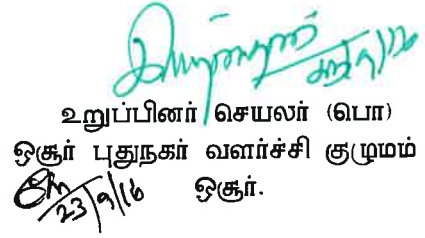 உறுப்பினர் செயலர் (பொ)
ஒசூர் புதுநகர் வளர்ச்சி குழுமம்
23/9/16 ஒசூர்.